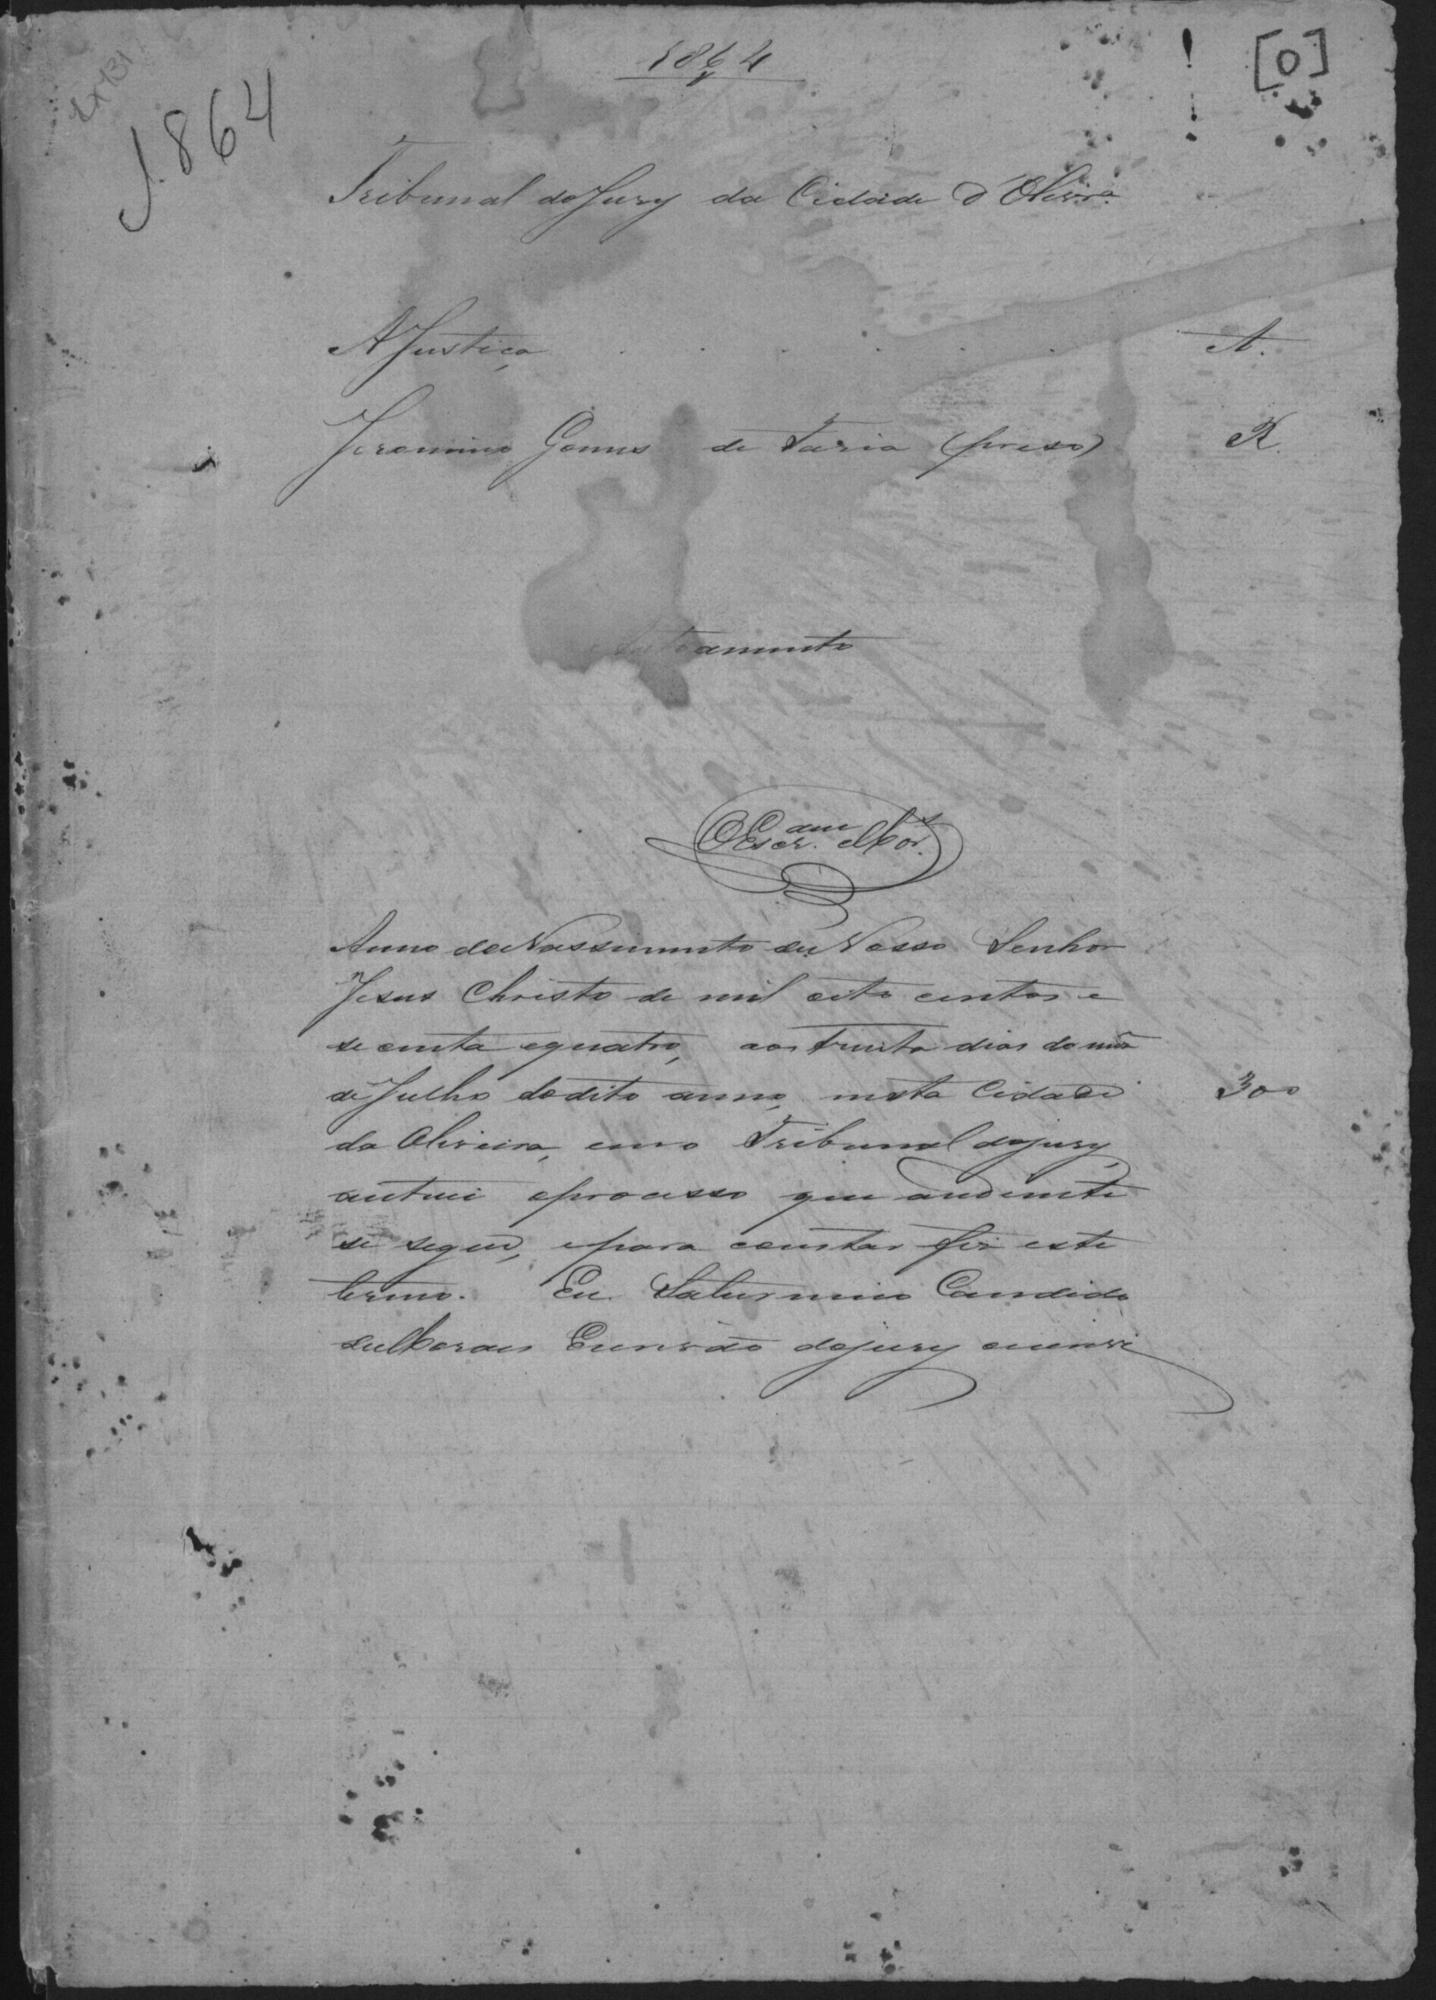 1864
[0]
1.864
Tribunal do Jury da Cidade d'Olivra.
A Justiça . . . . . . A.
Jeronimo Gomes de Faria (preso) R.
Autoamento
O Escr.am Mor.s
Anno do Nascimento de Nosso Senhor
Jesus Christo de mil oito centos e
secenta e quatro, aos trinta dias do mes
de Julho do dito anno, nesta Cidade
da Oliveira, em o Tribunal do jury, 300
autuei o processo que audiente
se segue, e para constar fiz este
termo. Eu Saturnino Candido
de Moraes Escrivão do jury escrevi